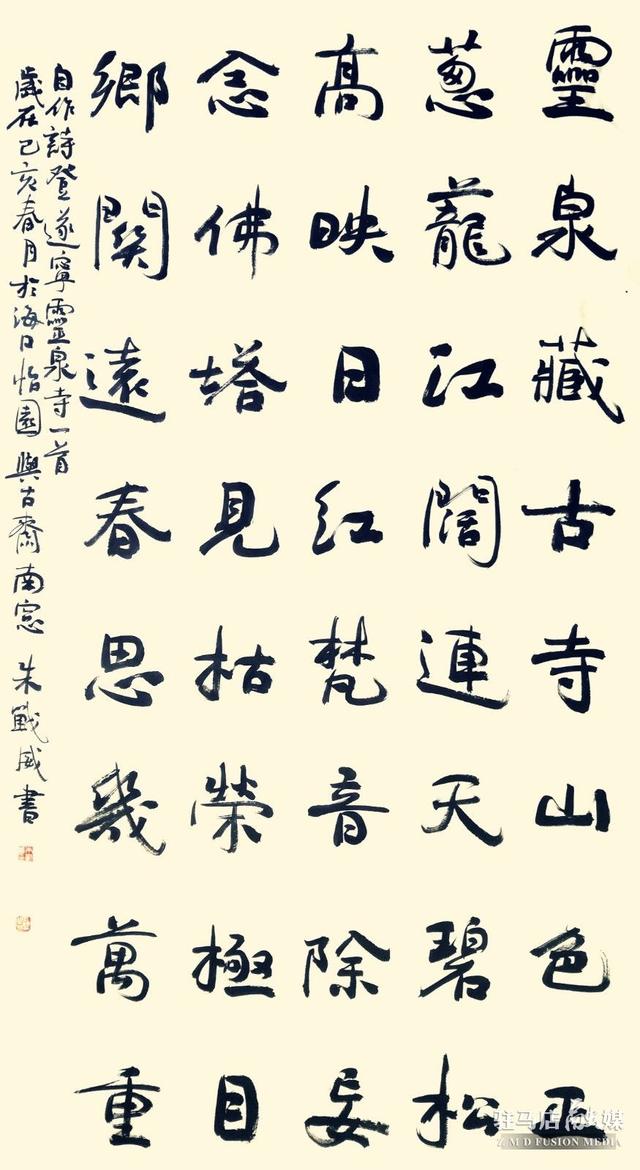 靈泉藏古寺山色正
蔥蘢江闊連天碧松
高映日紅梵音除妄
念佛塔見枯榮極目
鄉關遠春思幾萬重
自作詩登遂寧靈泉寺一首
歲在己亥春月於海口怡園與古齋南窓 朱戰威書
驻马店融媒
Z M D FUSION MEDIA